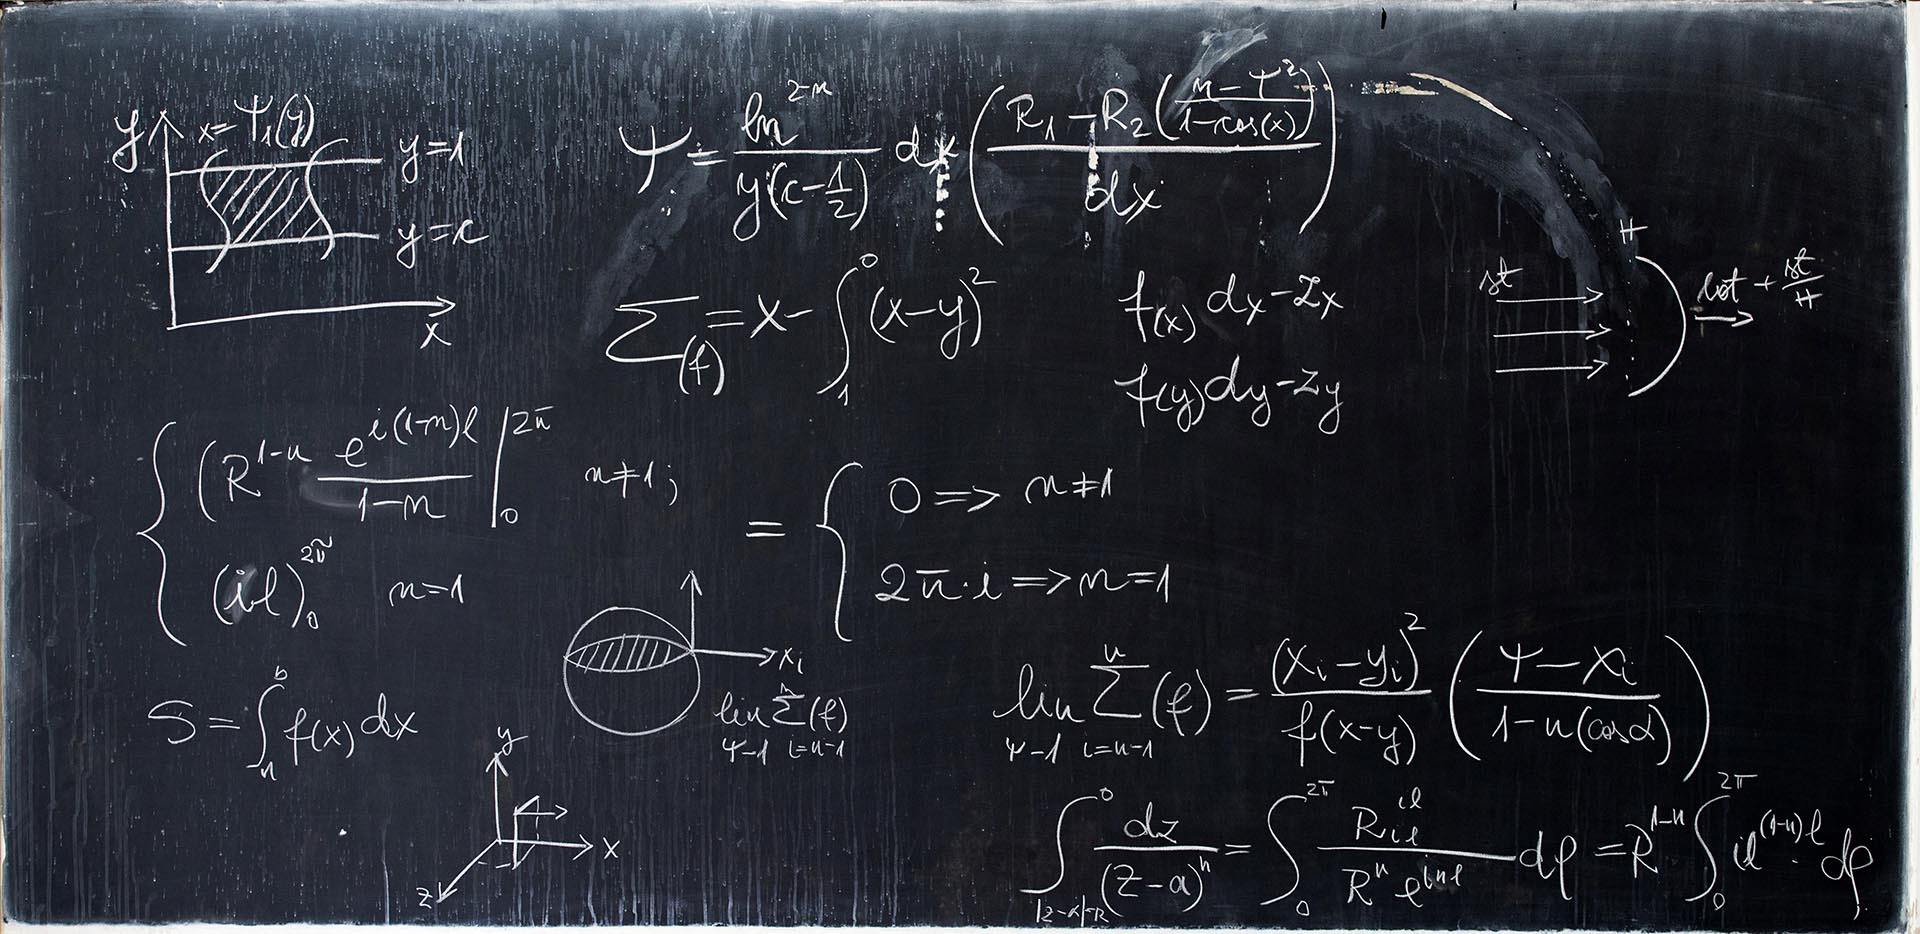 y x=Ψ₁(y)
y=1
y=c
x
Ψ = ln^(2-n) / y(c-1/2) dx ( (R₁-R₂((n-Ψ²)/(1-cos(x)))) / dx )
Σ_(f) = x - ∫₁⁰ (x-y)²
f(x) dx-Zx
f(y)dy-Zy
st
H
lot + st/H
{ (R^(1-n) e^(i(1-n)l) / (1-n) |₀^(2π) n≠1;
(il)₀^(2π) n=1
= { 0 => n≠1
2π·i => n=1
S = ∫ₙᵇ f(x)dx
xᵢ
lim Σ(f)
Ψ-1 i=n-1
y
x
z
lim_(Ψ-1) Σ_(i=n-1)^n (f) = (xᵢ-yᵢ)² / f(x-y) ( (Ψ-xᵢ) / (1-n(cosα)) )
∫⁰ dz/(z-a)ⁿ = ∫₀^(2π) R_(il)^(il) / Rⁿ e^(inl) dφ = R^(1-n) ∫₀^(2π) il^((1-n)l) dφ